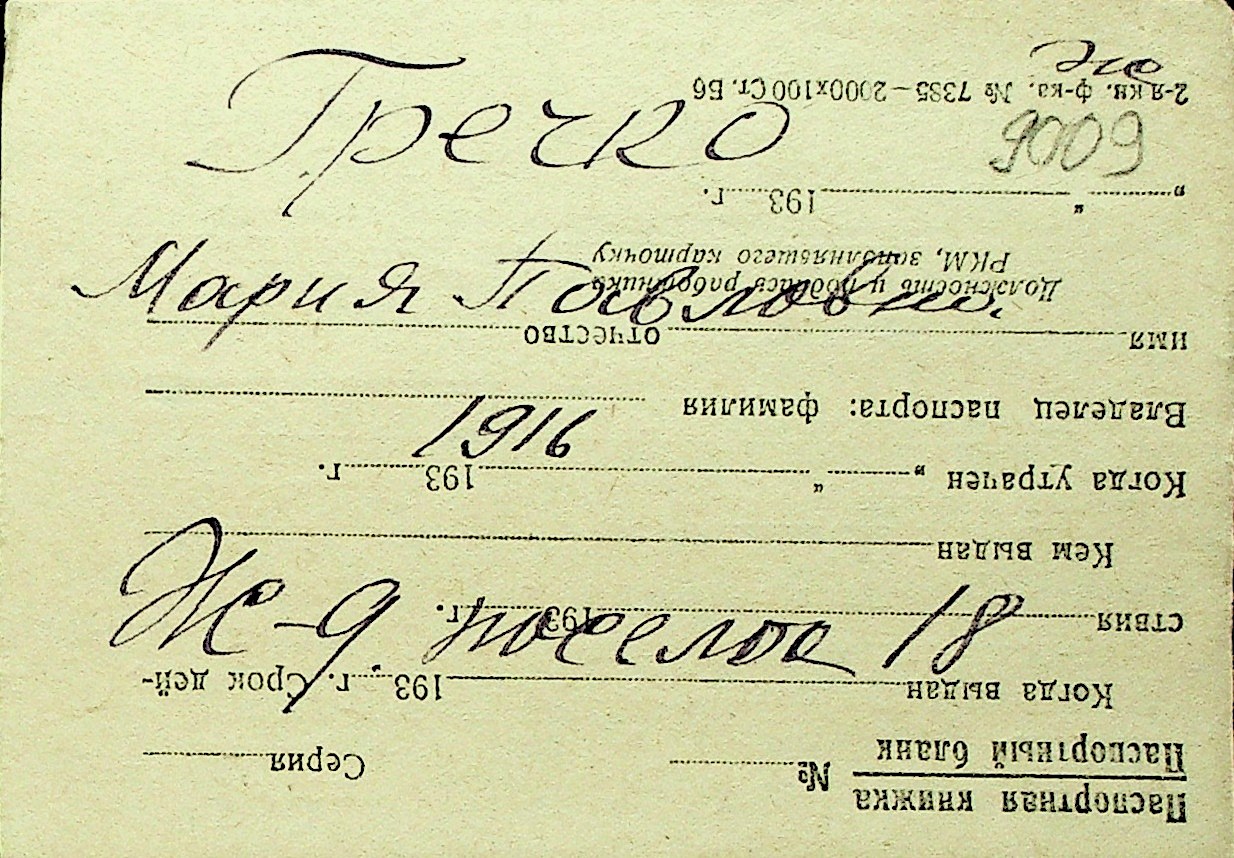 Эю
9009
Гречко
Мария Павловна.
1916
Ж-д поселок 18
Паспортная книжка
Паспортный бланк
№ Серия
Когда выдан 193 г. Срок дей-
ствия 193 г.
Кем выдан
Когда утрачен „ “ 193 г.
Владелец паспорта: фамилия
имя отчество
Должность и подпись работника
РКМ, заполнявшего карточку
„ “ 193 г.
2-я кн. ф-ка. № 7385—2000х100 Ст. Б6